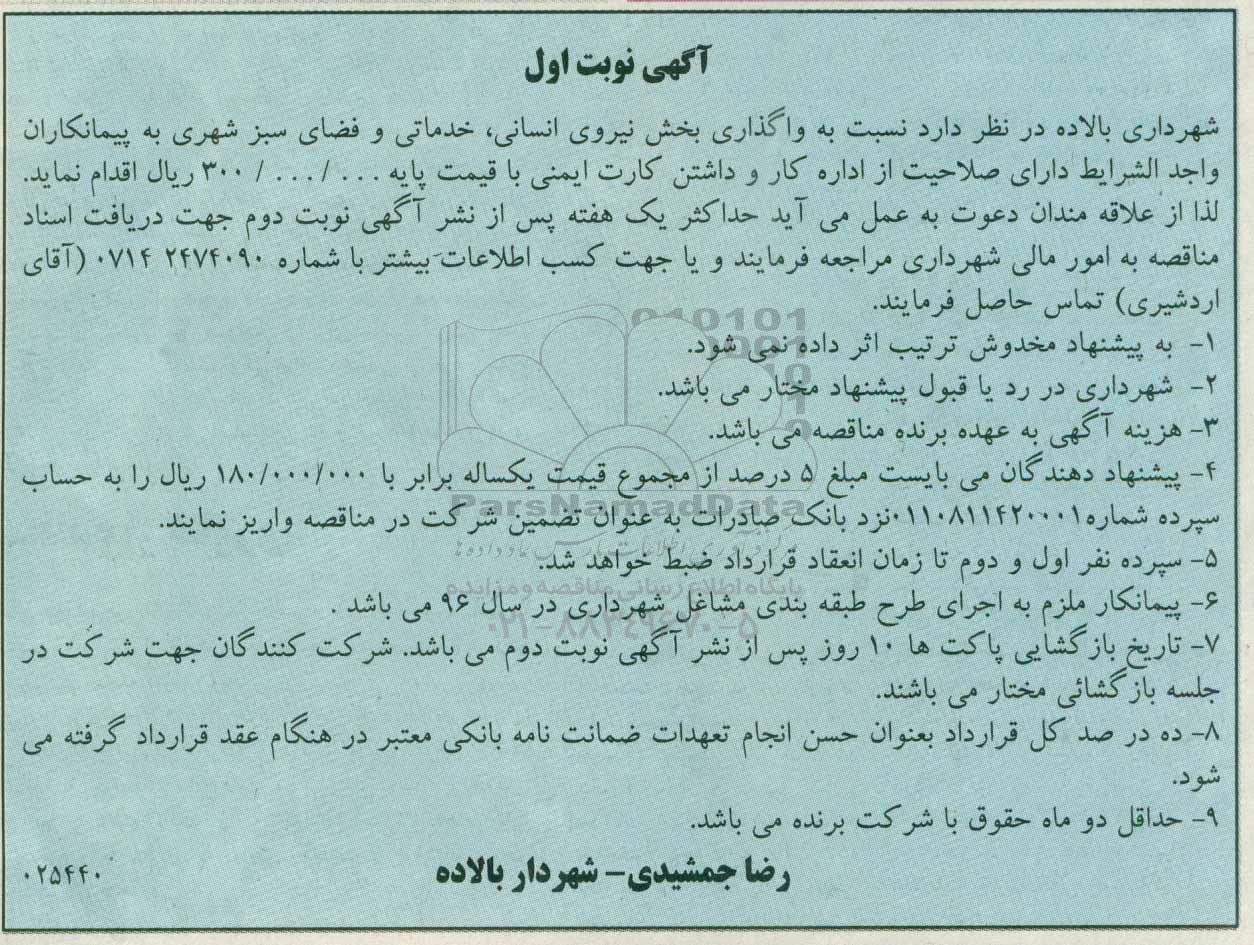 آگهی نوبت اول
شهرداری بالاده در نظر دارد نسبت به واگذاری بخش نیروی انسانی، خدماتی و فضای سبز شهری به پیمانکاران
واجد الشرایط دارای صلاحیت از اداره کار و داشتن کارت ایمنی با قیمت پایه ۰۰۰/۰۰۰/۳۰۰ ریال اقدام نماید.
لذا از علاقه مندان دعوت به عمل می آید حداکثر یک هفته پس از نشر آگهی نوبت دوم جهت دریافت اسناد
مناقصه به امور مالی شهرداری مراجعه فرمایند و یا جهت کسب اطلاعات بیشتر با شماره ۲۴۷۴۰۹۰ ۰۷۱۴ (آقای
اردشیری) تماس حاصل فرمایند.
۱- به پیشنهاد مخدوش ترتیب اثر داده نمی شود.
۲- شهرداری در رد یا قبول پیشنهاد مختار می باشد.
۳- هزینه آگهی به عهده برنده مناقصه می باشد.
۴- پیشنهاد دهندگان می بایست مبلغ ۵ درصد از مجموع قیمت یکساله برابر با ۱۸۰/۰۰۰/۰۰۰ ریال را به حساب
سپرده شماره۰۱۱۰۸۱۱۴۲۰۰۰۱نزد بانک صادرات به عنوان تضمین شرکت در مناقصه واریز نمایند.
۵- سپرده نفر اول و دوم تا زمان انعقاد قرارداد ضبط خواهد شد.
۶- پیمانکار ملزم به اجرای طرح طبقه بندی مشاغل شهرداری در سال ۹۶ می باشد .
۷- تاریخ بازگشایی پاکت ها ۱۰ روز پس از نشر آگهی نوبت دوم می باشد. شرکت کنندگان جهت شرکت در
جلسه بازگشائی مختار می باشند.
۸- ده در صد کل قرارداد بعنوان حسن انجام تعهدات ضمانت نامه بانکی معتبر در هنگام عقد قرارداد گرفته می
شود.
۹- حداقل دو ماه حقوق با شرکت برنده می باشد.
رضا جمشیدی- شهردار بالاده
۰۲۵۴۴۰
ParsNamadData
پایگاه اطلاع رسانی مناقصه و مزایده
۰۲۱-۸۸۳۴۹۶۷۰-۵